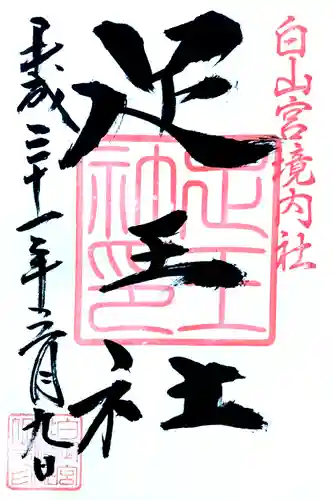 白山宮境内社
足王社
平成三十一年二月九日
足王神印